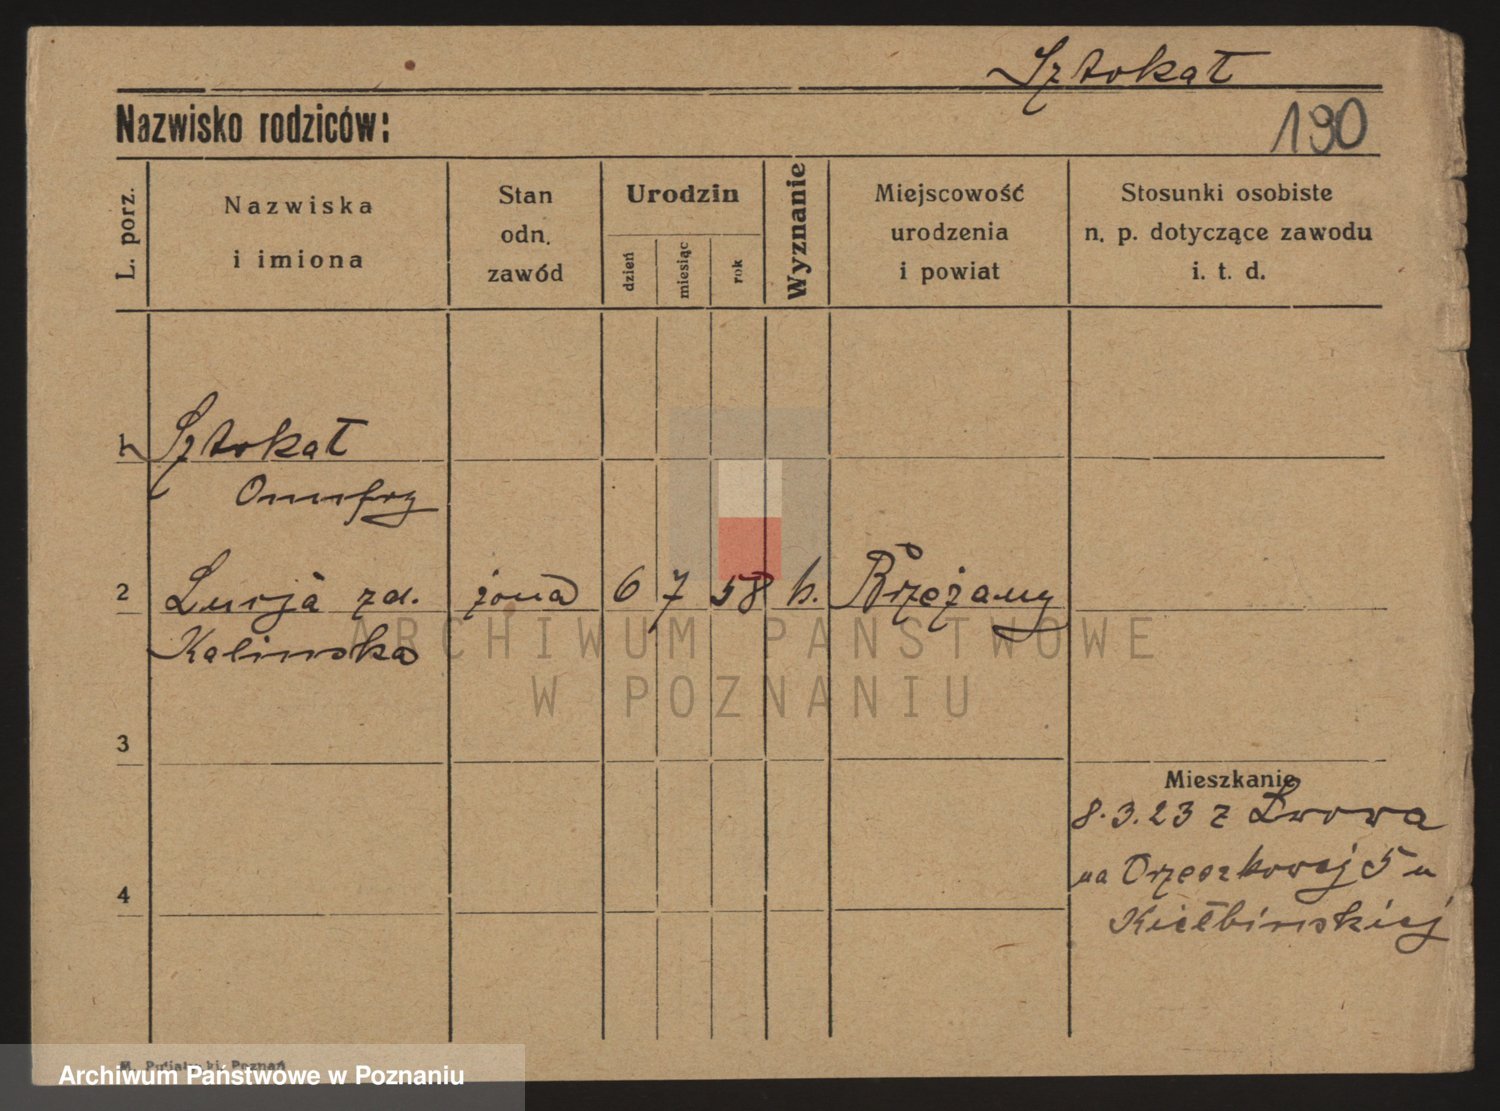 Sztokał
Nazwisko rodziców:
190
L. porz.
Nazwiska
i imiona
Stan
odn.
zawód
Urodzin
dzień
miesiąc
rok
Wyznanie
Miejscowość
urodzenia
i powiat
Stosunki osobiste
n. p. dotyczące zawodu
i. t. d.
1 Sztokał
Onufry
2 Lucja zd. żona 6 7 58 k. Brzeżany
Kalinska
ARCHIWUM PAŃSTWOWE
W POZNANIU
3
Mieszkanie
8.3.23 z Lwowa
na Orzeszkowej 5 u
4
Kiełbinskiej
Poznań
Archiwum Państwowe w Poznaniu